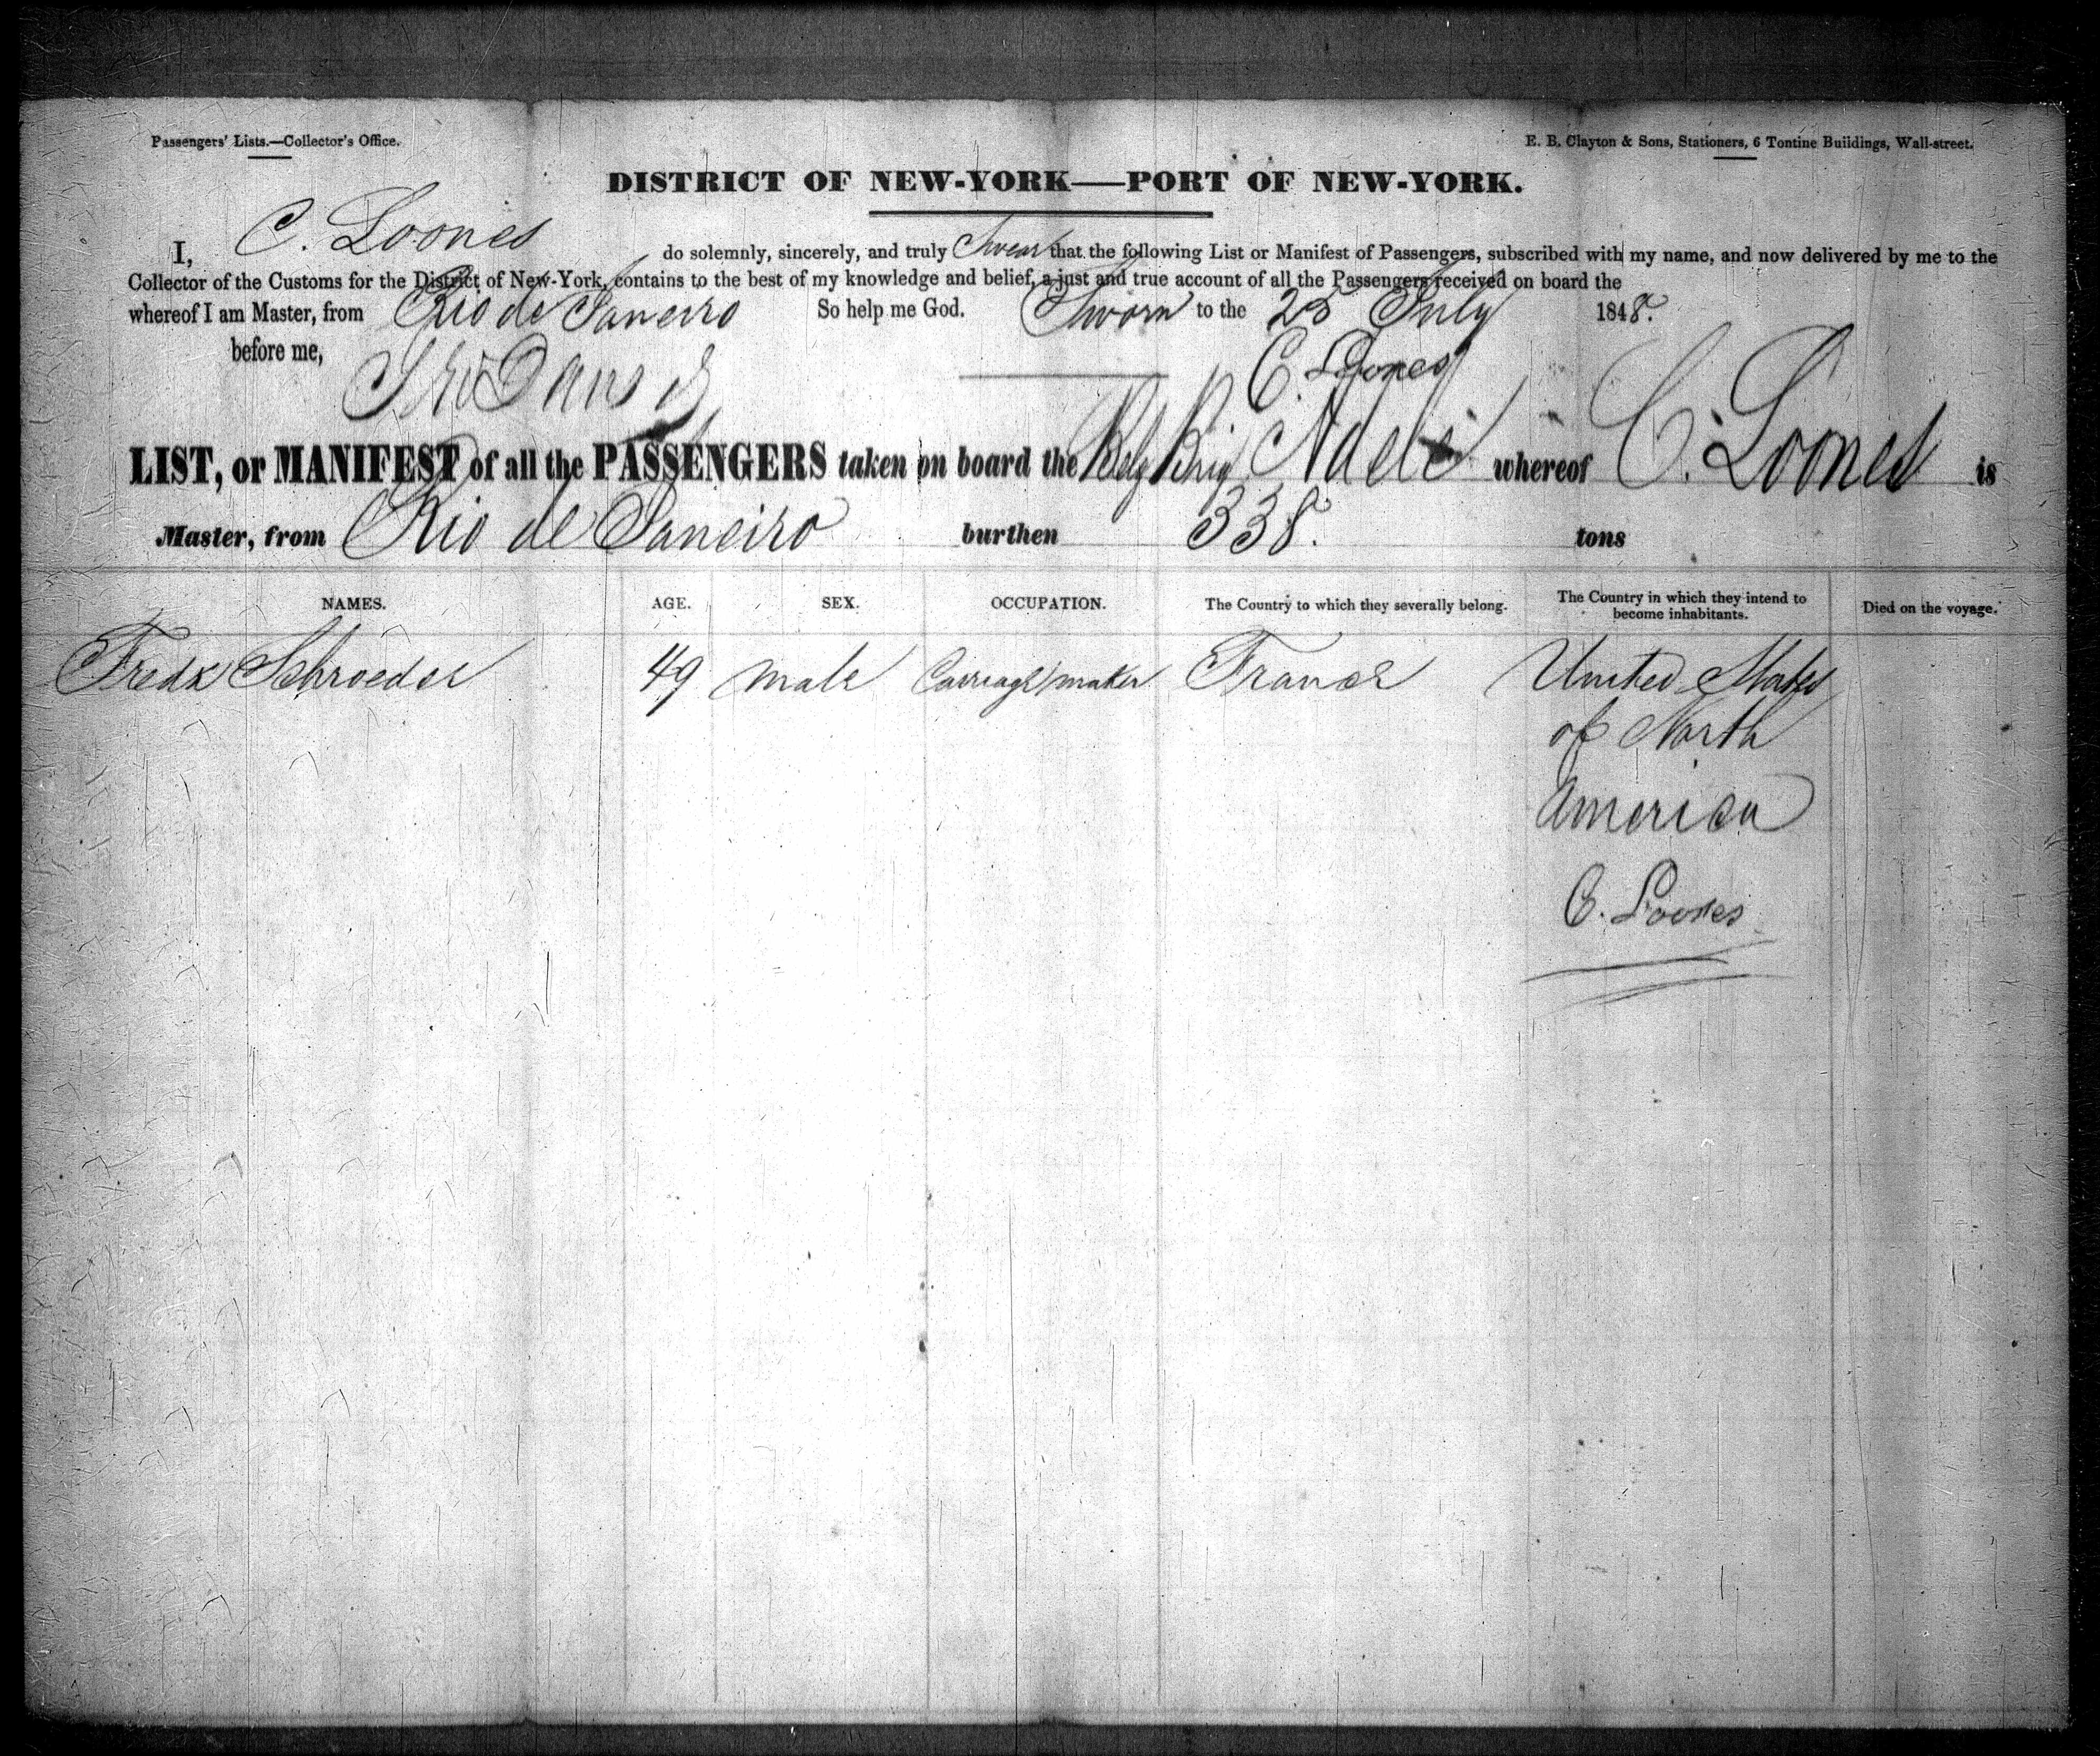 Passengers' Lists.—Collector's Office.
E. B. Clayton & Sons, Stationers, 6 Tontine Buildings, Wall-street.
DISTRICT OF NEW-YORK—PORT OF NEW-YORK.
I, C. Loones do solemnly, sincerely, and truly Swear that the following List or Manifest of Passengers, subscribed with my name, and now delivered by me to the
Collector of the Customs for the District of New-York, contains to the best of my knowledge and belief, a just and true account of all the Passengers received on board the
whereof I am Master, from Rio de Janeiro So help me God. Sworn to the 25 July 1848.
before me, C. Loones
LIST, or MANIFEST of all the PASSENGERS taken on board the Belg Brig Adele whereof C. Loones is
Master, from Rio de Janeiro burthen 338. tons
NAMES. AGE. SEX. OCCUPATION. The Country to which they severally belong. The Country in which they intend to become inhabitants. Died on the voyage.
Fredk Schroeder 49 male Carriage maker France United States
of North
America
C. Loones